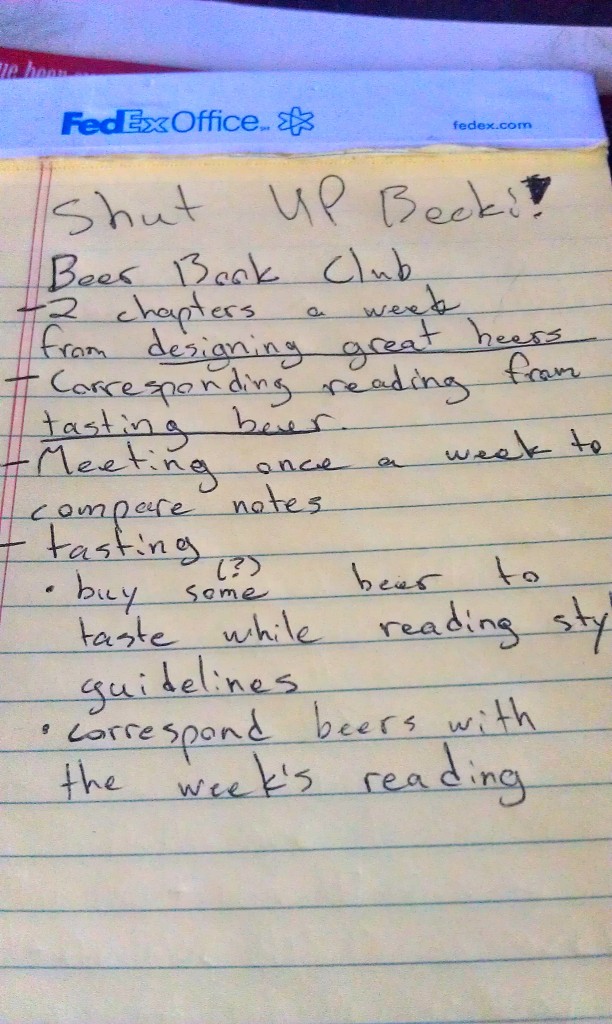 FedEx Office
fedex.com
Shut UP Becki!
Beer Book Club
- 2 chapters a week
from designing great beers
- Corresponding reading from
tasting beer.
- Meeting once a week to
compare notes
- tasting
(?)
• buy some beer to
taste while reading sty
guidelines
• correspond beers with
the week's reading